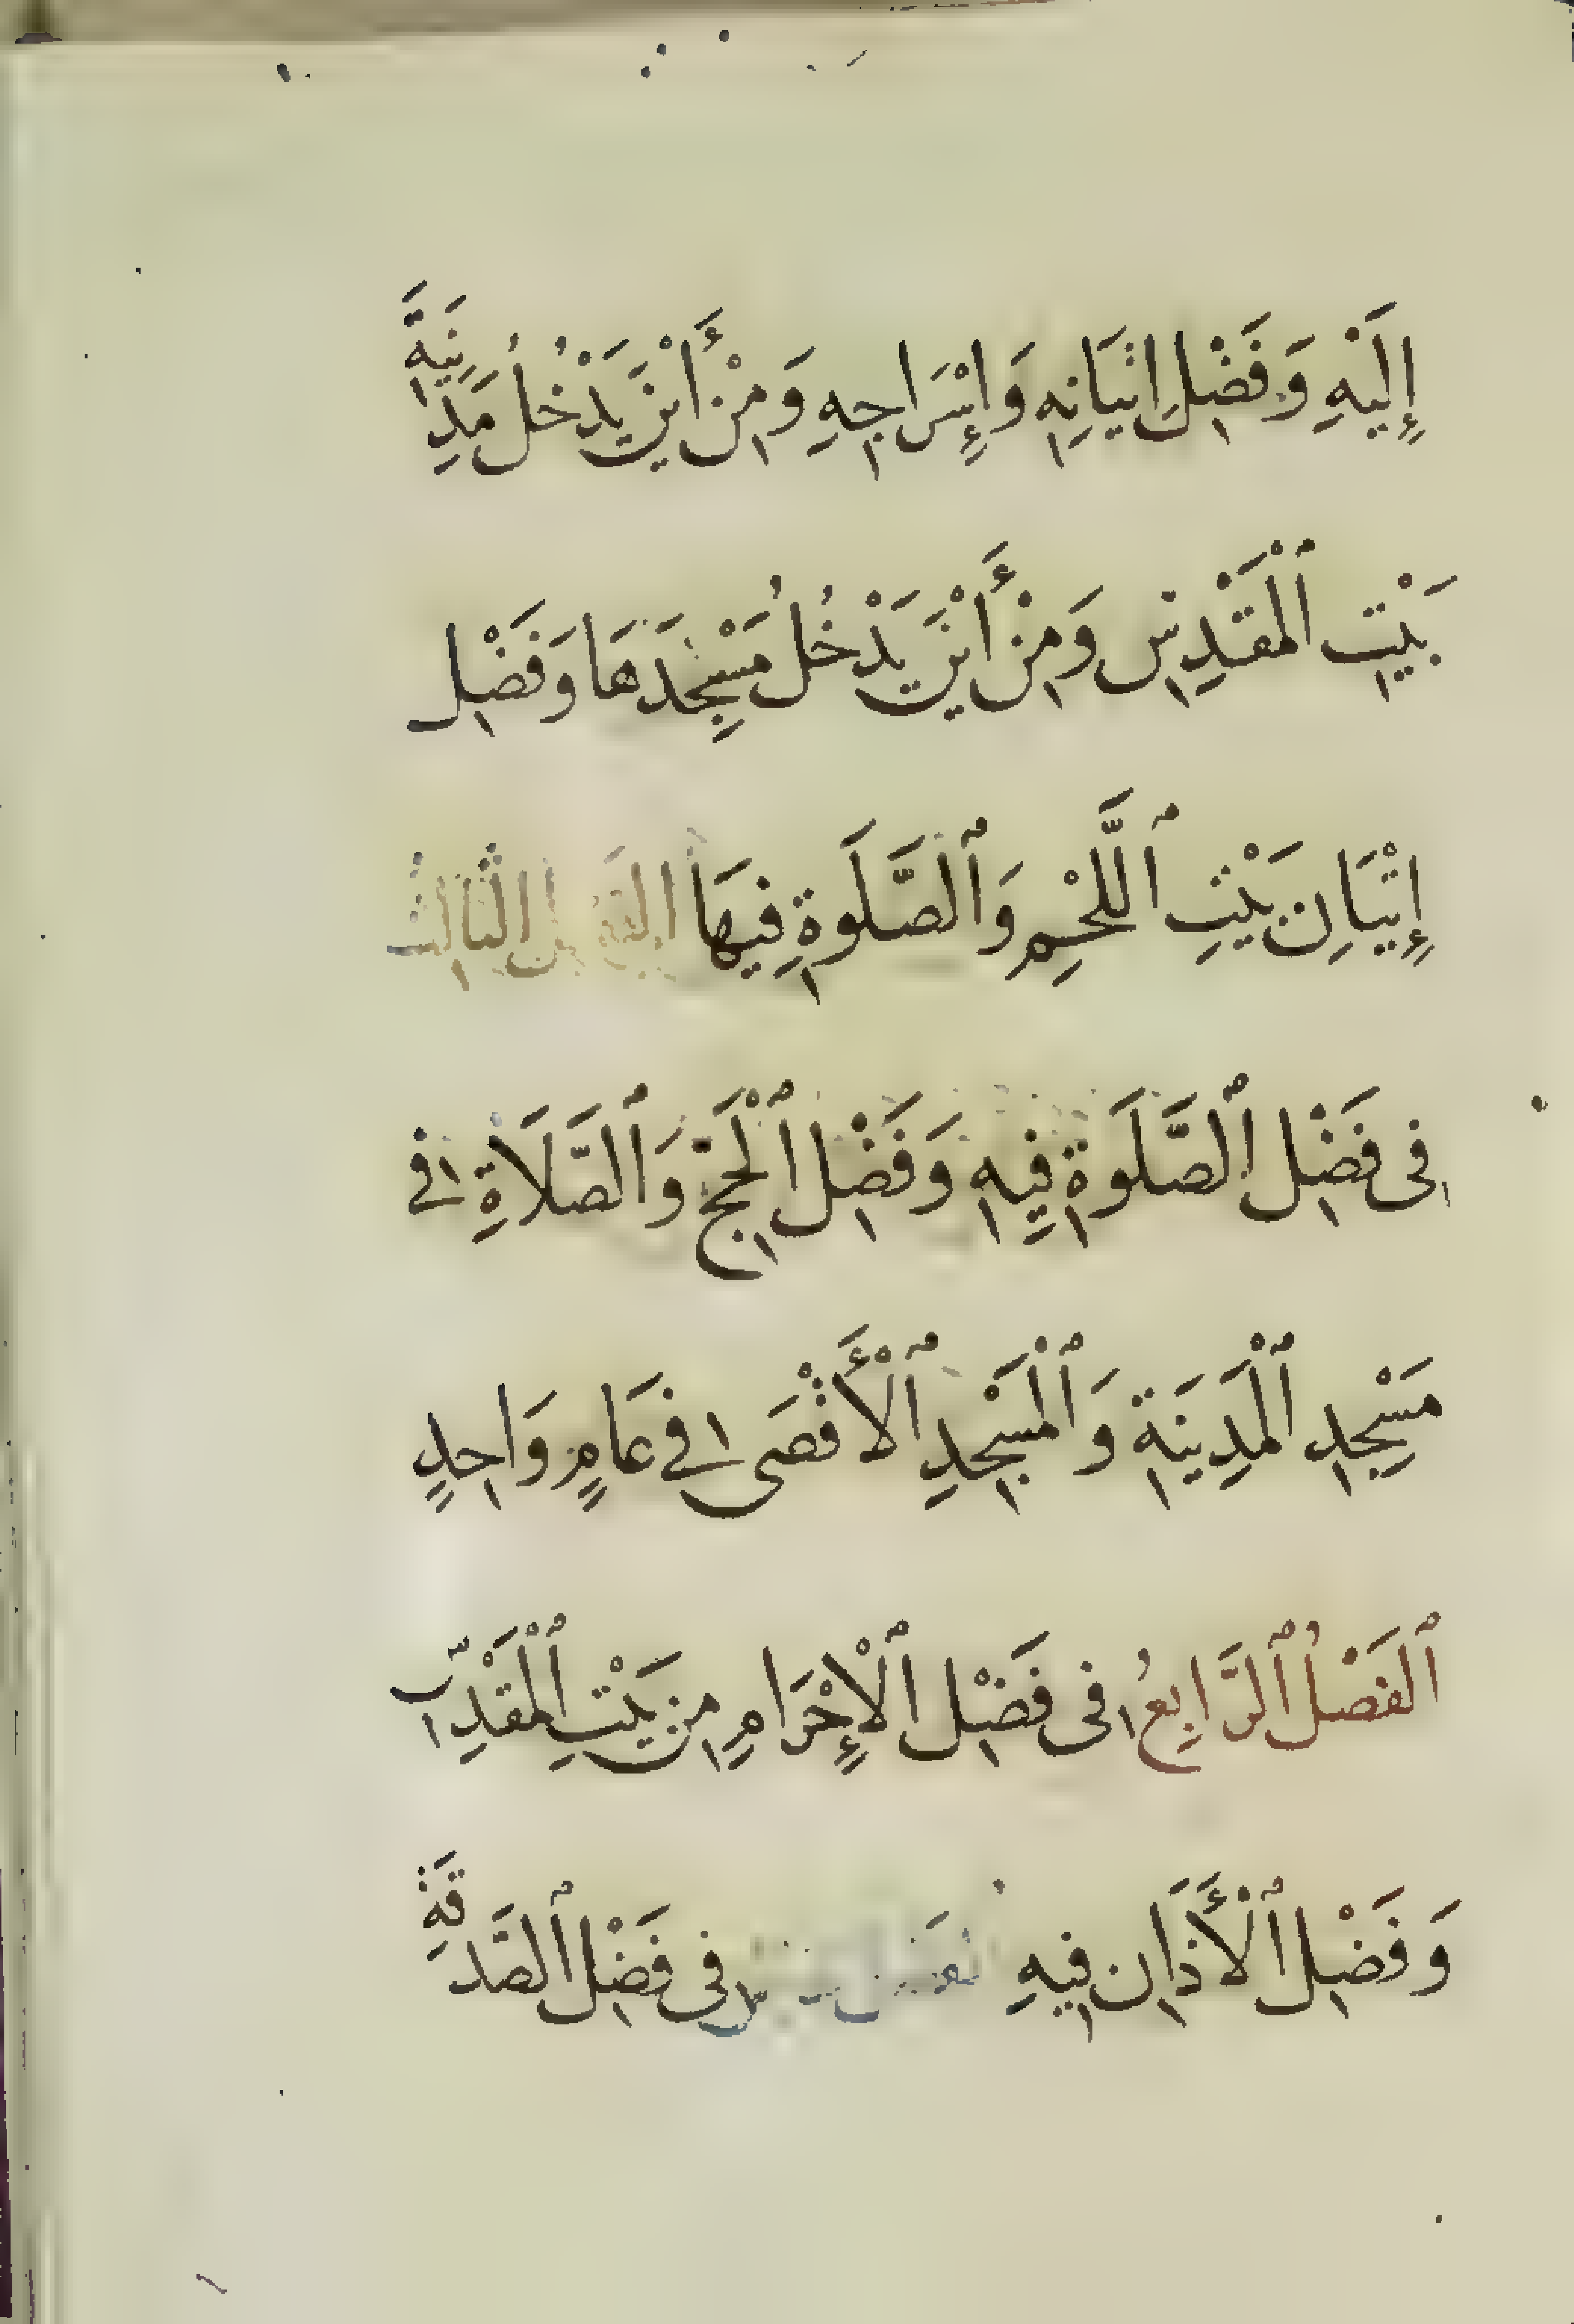 إِلَيْهِ وَفَضْلِ إِتْيَانِهِ وَإِسْرَاجِهِ وَمِنْ أَيْنَ يَدْخُلُ مَدِينَةَ
بَيْتِ ٱلْمَقْدِسِ وَمِنْ أَيْنَ يَدْخُلُ مَسْجِدَهَا وَفَضْلِ
إِتْيَانِ بَيْتِ ٱللَّحْمِ وَٱلصَّلَوةِ فِيهَا الفَصْلُ الثَّالِثُ
فِى فَضْلِ ٱلصَّلَوةِ فِيهِ وَفَضْلِ ٱلْحَجِّ وَٱلصَّلَاةِ فِى
مَسْجِدِ ٱلْمَدِينَةِ وَٱلْمَسْجِدِ ٱلْأَقْصَى فِى عَامٍ وَاحِدٍ
ٱلْفَصْلُ ٱلرَّابِعُ فِى فَضْلِ ٱلْإِحْرَامِ مِن بَيْتِ ٱلْمَقْدِسِ
وَفَضْلِ ٱلْأَذَانِ فِيهِ فِى فَضْلِ ٱلصَّدَقَةِ